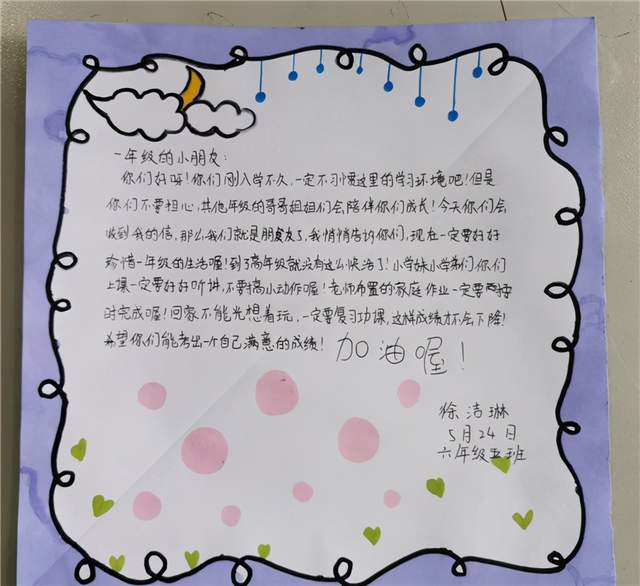 一年级的小朋友：
你们好呀！你们刚入学不久，一定不习惯这里的学习环境吧！但是
你们不要担心，其他年级的哥哥姐姐们会陪伴你们成长！今天你们会
收到我的信，那么我们就是朋友了，我悄悄告诉你们，现在一定要好好
珍惜一年级的生活喔！到了高年级就没有这么快活了！小学妹小学弟们你们
上课一定要好好听讲，不要搞小动作喔！老师布置的家庭作业一定要按
时完成喔！回家不能光想着玩，一定要复习功课，这样成绩才不会下降！
希望你们能考出一个自己满意的成绩！加油喔！
徐洁琳
5月24日
六年级五班